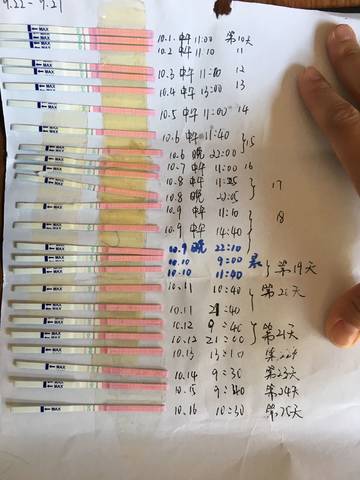 9.22-9.21
10.1 中午 11:00 第10天
10.2 中午 11:10 11
10.3 中午 11:10 12
10.4 中午 13:00 13
10.5 中午 11:00 14
10.6 中午 11:40
10.6 晚 22:00 15
10.7 中午 11:00 16
10.8 中午 11:25
10.8 晚 22:05 17
10.9 中午 11:10
10.9 中午 14:40 18
10.9 晚 22:10
10.10 9:00
10.10 11:40 第19天
10.11 10:40 第20天
10.11 21:40
10.12 9:40
10.12 21:00 第21天
10.13 13:10 第22天
10.14 9:30 第23天
10.15 9:40 第24天
10.16 10:30 第25天